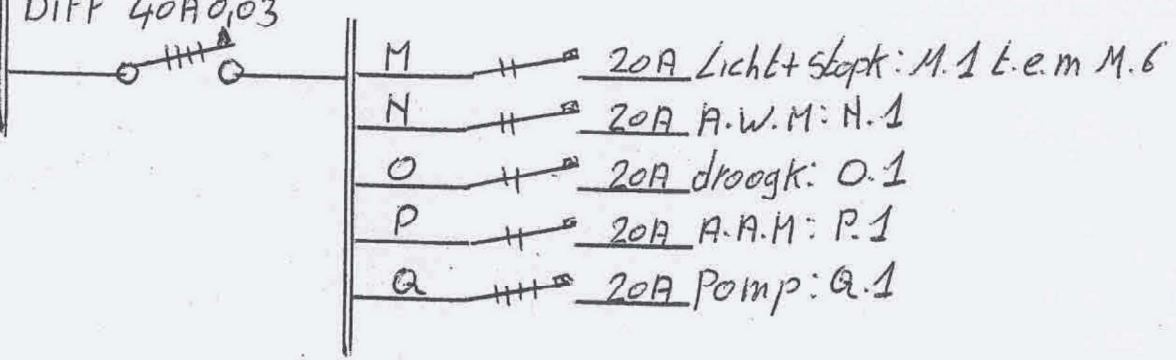 DIFF 40A 0,03
M 20A Licht+stopk: M.1 t.e.m M.6
N 20A A.W.M: N.1
O 20A droogk: O.1
P 20A A.A.M: P.1
Q 20A Pomp: Q.1